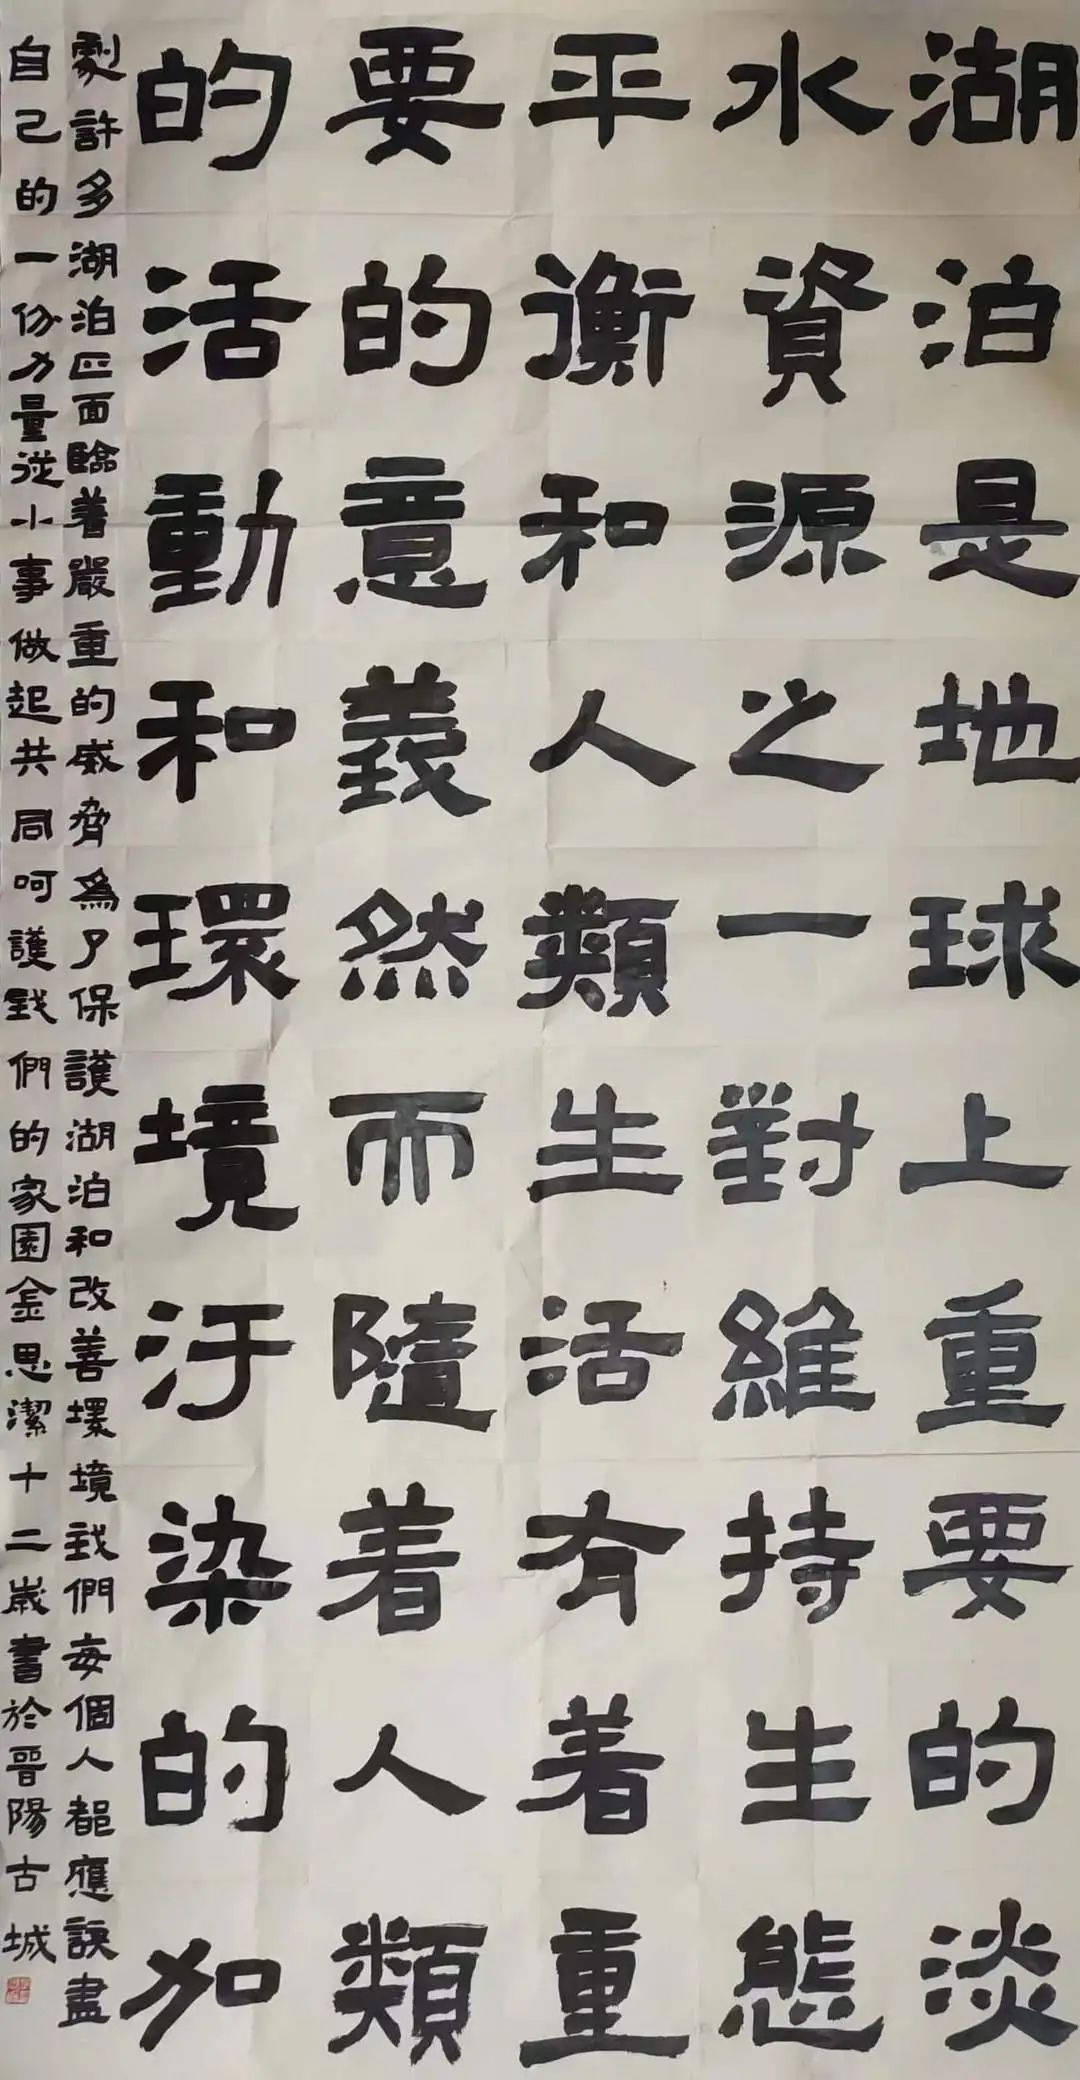 湖泊是地球上重要的淡
水資源之一對維持生態
平衡和人類生活有着重
要的意義然而隨着人類
的活動和環境汙染的加
劇許多湖泊正面臨着嚴重的威脅爲了保護湖泊和改善環境我們每個人都應該盡
自己的一份力量從小事做起共同呵護我們的家園金思潔十二歲書於晉陽古城